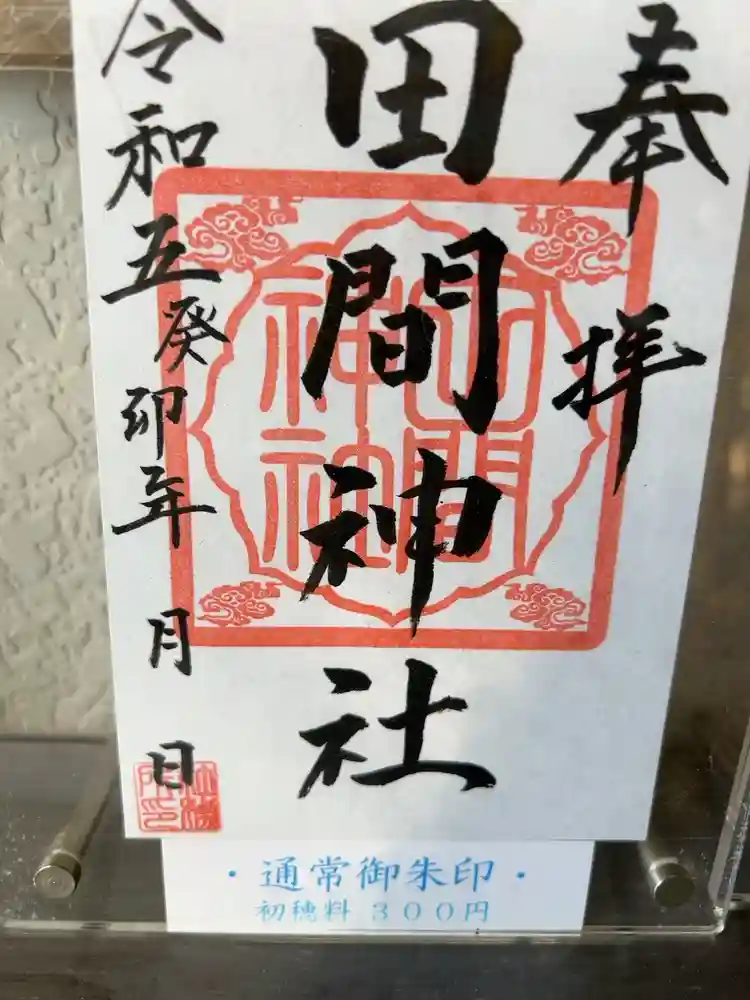 奉拝
田間神社
令和五癸卯年 月 日
田間
神社
・通常御朱印・
初穂料 300円